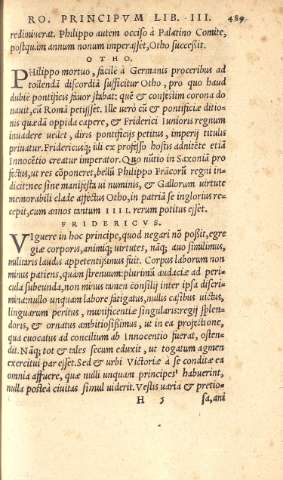 RO. PRINCIPVM LIB. III. 489
redimuerat. Philippo autem occiso à Palatino Comite,
postquàm annum nonum imperasset, Otho successit.
OTHO.
Philippo mortuo, facilè à Germanis proceribus ad
tollendã discordiã sufficitur Otho, pro quo haud
dubiè pontificis fauor stabat: quẽ & confestim corona do
nauit, cũ Romã petisset. Ille uerò cũ & pontificiæ ditio
nis quædã oppida capere, & Friderici Iunioris regnum
inuadere uellet, diris pontificijs petitus, imperij titulis
priuatur. Fridericusq; illi ex professo hostis adnitẽte etiã
Innocẽtio creatur imperator. Quo nũtio in Saxoniã pro
fectus, ut res cõponeret, bellũ Philippo Frãcorũ regi in
dicit: nec sine manifesta ui numinis, & Gallorum uirtute
memorabili clade affectus Otho, in patriã se inglorius re
cepit, cum annos tantum IIII. rerum potitus esset.
FRIDERICVS.
Viguere in hoc principe, quod negari nõ possit, egre
giæ corporis, animiq; uirtutes, nãq; auo simillimus,
militaris laudis appetentissimus fuit. Corpus laborum non
minus patiens, quàm strenuum: plurimũ audaciæ ad peri
cula subeunda, non minus tamen consilij inter ipsa discri
mina: nullo unquam labore fatigatus, nullis casibus uictus,
linguarum peritus, munificentiæ singularis: regij splen-
doris, & ornatus ambitiosissimus, ut in ea profectione,
qua euocatus ad concilium ab Innocentio fuerat, osten-
dit. Nãq; tot & tales secum eduxit, ut togatum agmen
exercitui par esset. Sed & urbi Victoriæ à se conditæ ea
omnia affuere, quæ nulli unquam principes habuerint,
nulla posteà ciuitas simul uiderit. Vestis uaria & pretio-
H 5 sa, ani